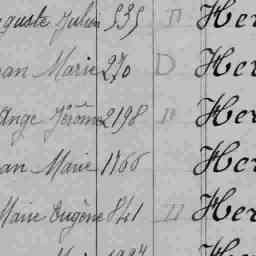 guste Julien 535 Her
an Marie 270 D Her
Ange Jérôme 2198 Her
an Marie 1766 Her
Marie Eugène 841 Her